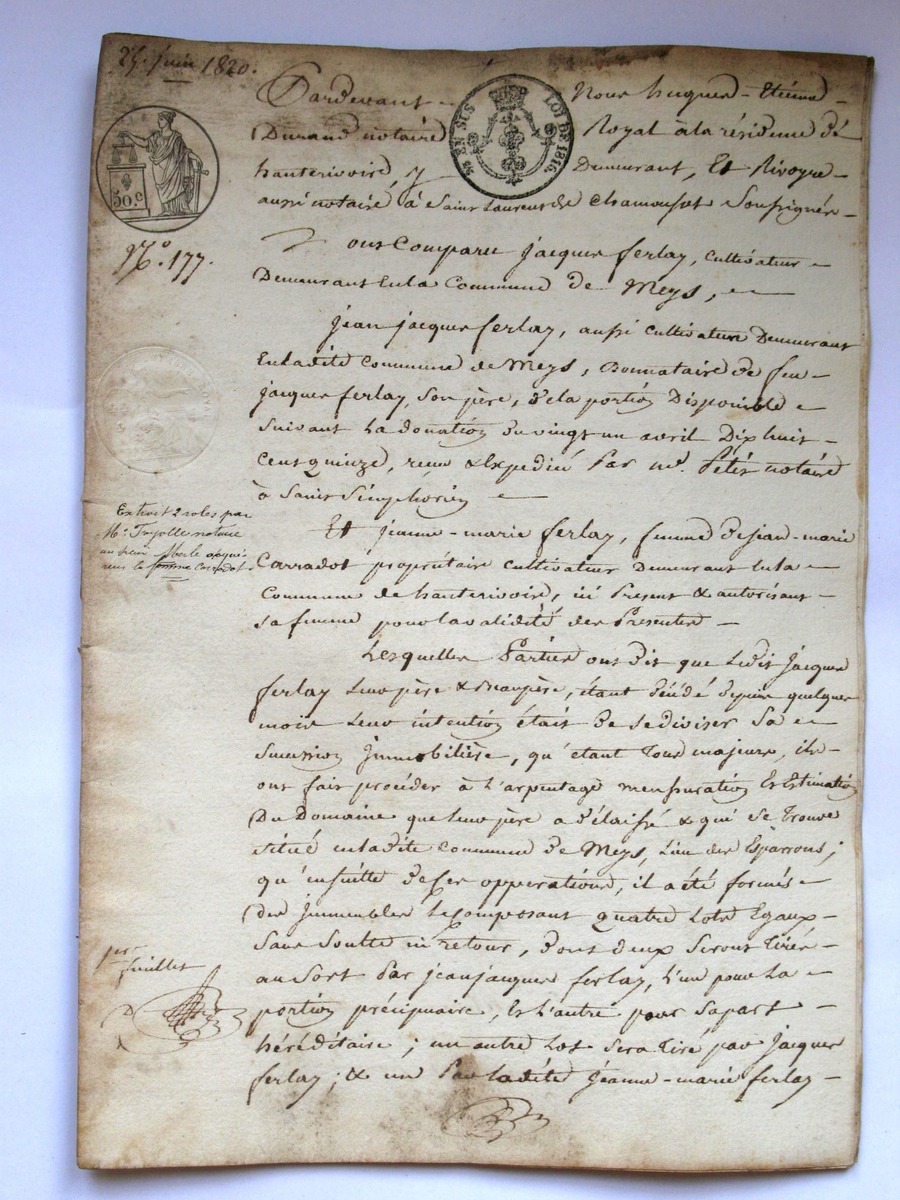 25. Juin 1820.
50.c
EN SUS LOI DE 1816
Pardevant Nous hugues-Etienne
Durand notaire Royal à la résidence de
hauterivoire, y Demeurant, Et Rivoyre
aussi notaire à Saint Laurent de Chamousset Soussignés
N.o 177.
Ont Comparu Jacques ferlay, cultivateur
Demeurant En la Commune de Meys,
Jean jacques ferlay, aussi cultivateur Demeurant
En ladite Commune de Meys, Donnataire de feu
Jacques ferlay, Son père, de la portion Disponible
Suivant La donation du vingt un avril Dix huit
Cent quinze, reçue & Expédiée Par me. Petit notaire
à Saint Simphorien
Extrait 2 roles par
Me. notaire
au sieur acqué-
reur la femme Carradot
Et Jeanne-marie ferlay, femme de jean-marie
Carradot propriétaire cultivateur Demeurant En la
Commune de hauterivoire, ici Présent & autorisant
sa femme pour la validité des Présentes
Lesquelles Parties ont dit que Ledit Jacques
ferlay Leur père & Beaupère, étant décédé depuis quelques
mois Leur intention était De se diviser Sa
Succession Immobilière, qu'étant Tous majeurs, ils
ont fait procéder à L'arpentage mensuration Et Estimation
Du Domaine que Leur père a délaissé & qui se Trouve
situé en ladite Commune de Meys, Lieu des Esparrons;
qu'ensuitte de ces opperations, il a été formés
des Immeubles Le Composant quatre Lots Egaux
Sans Soulte ni Retour, dont deux Seront Tirés
au Sort Par jean jacques ferlay, L'un pour La
portion précipuaire, Et L'autre pour sa part
héréditaire; un autre Lot Sera Tiré par Jacques
ferlay; & un Par Ladite Jeanne-marie ferlay
per
feuillet